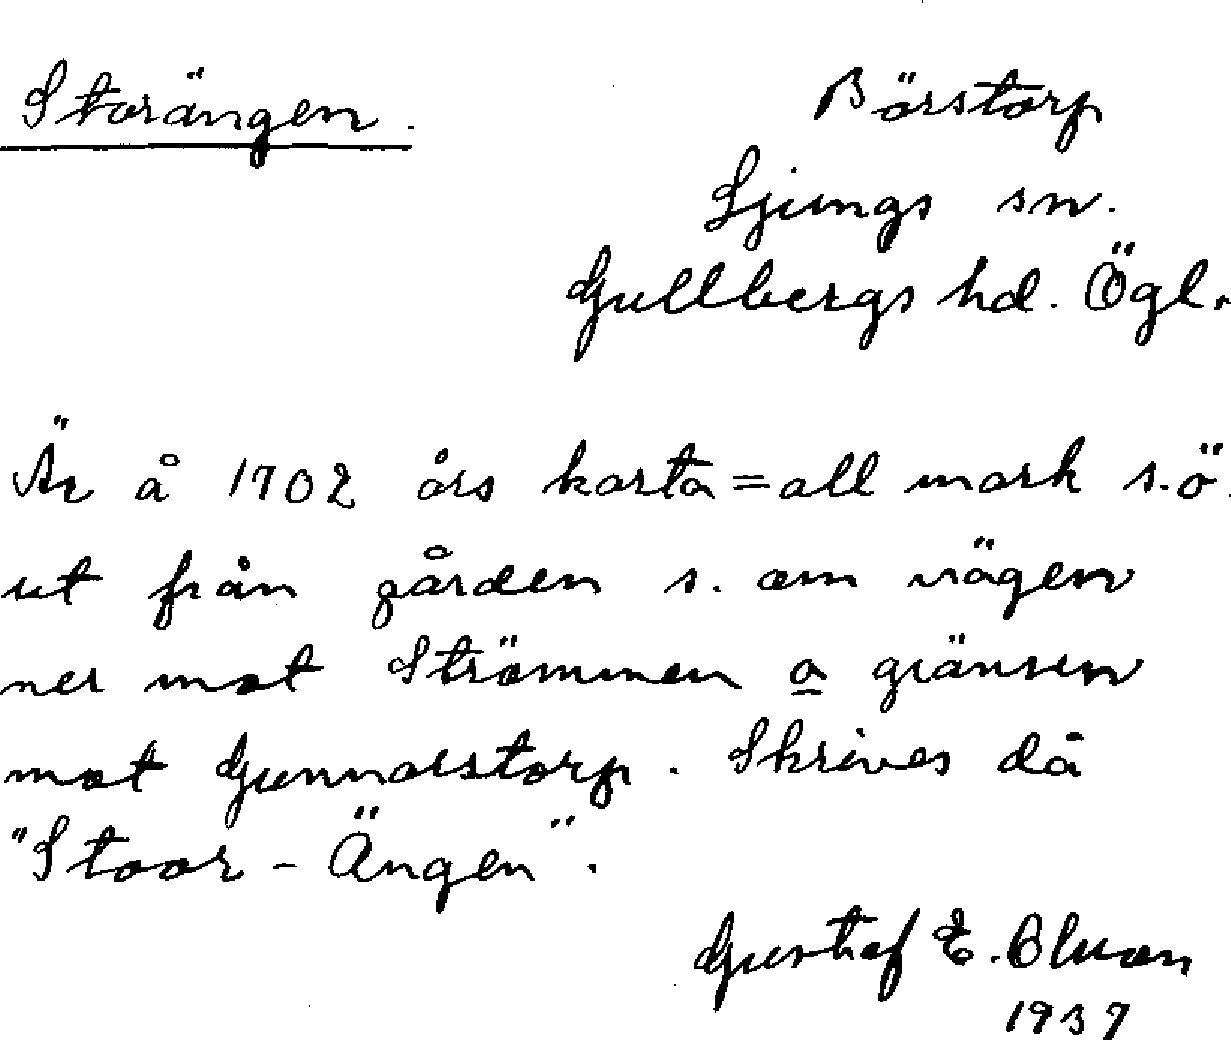 Storängen.
Börstorp
Ljungs sn.
Gullbergs hd. Ögl.
Är å 1702 års karta = all mark s.ö.
ut från gården s. om vägen
ner mot Strömmen a gränsen
mot Gunnorstorp. Skrives då
"Stoor-Ängen".
Gustaf E.
1937